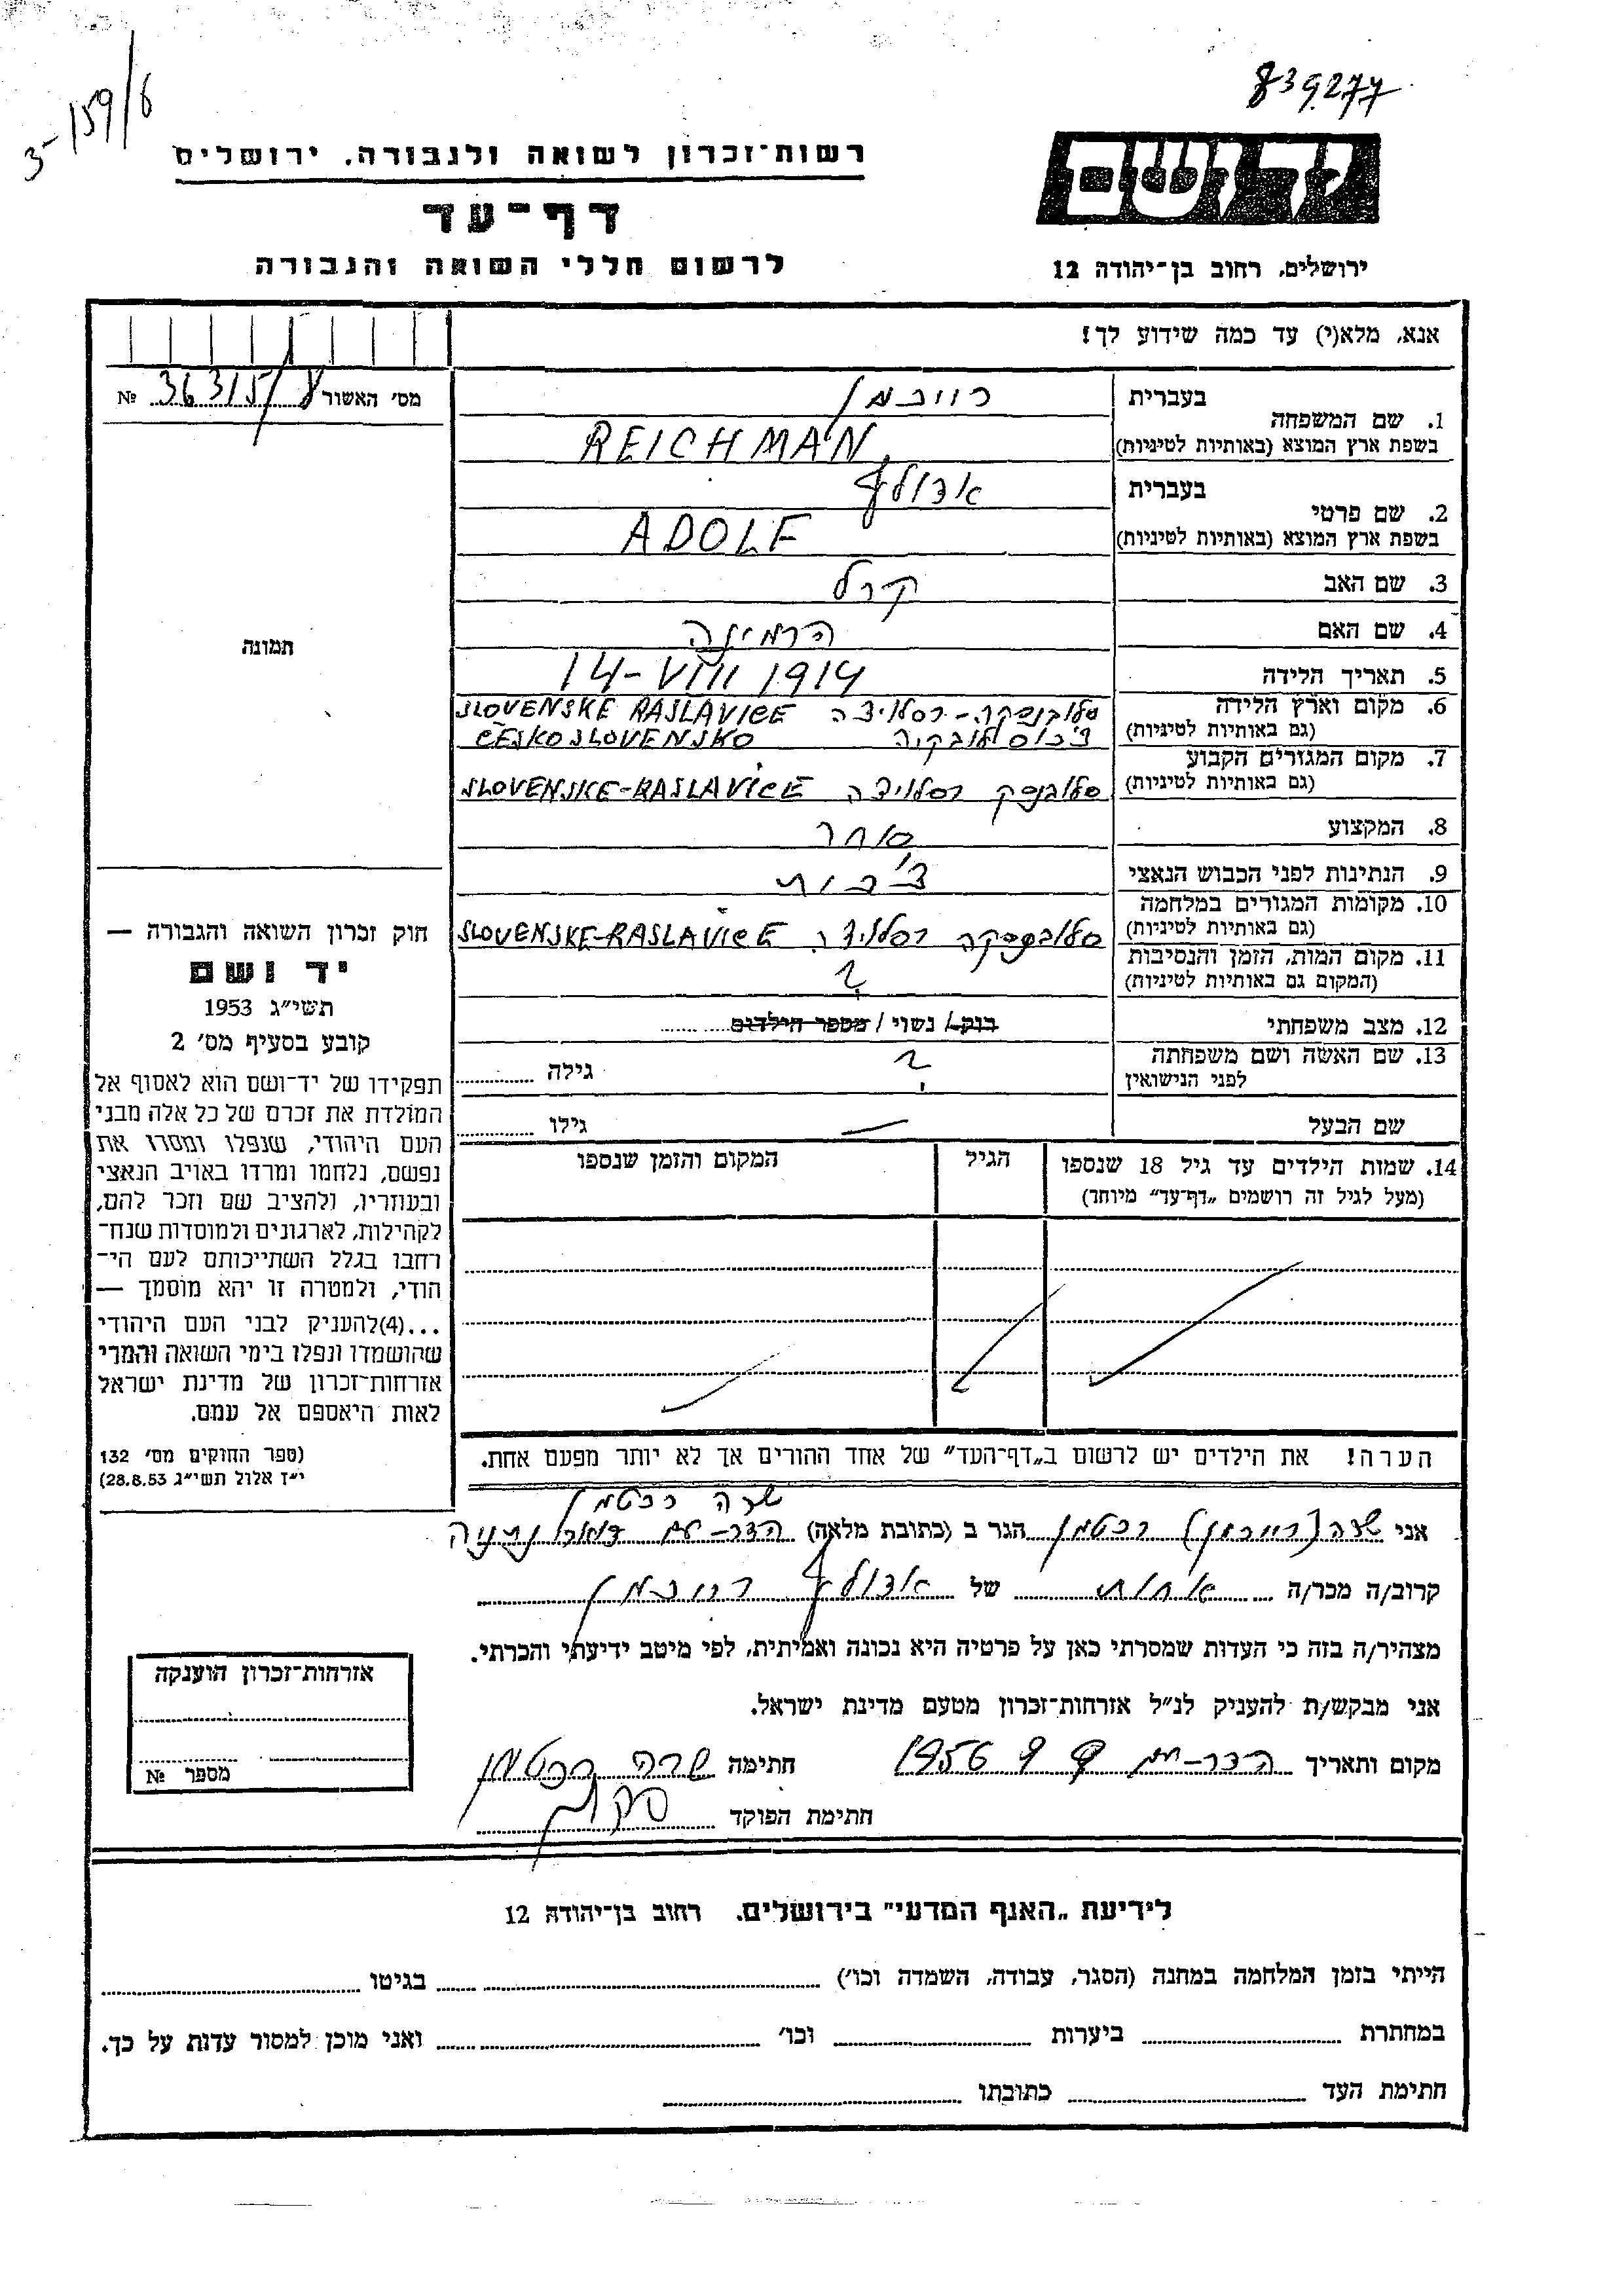 3-159/6
839277
יד ושם
רשות־זכרון לשואה ולגבורה, ירושלים
דף־עד
לרשום חללי השואה והגבורה
ירושלים, רחוב בן־יהודה 12
אנא, מלא(י) עד כמה שידוע לך!
מס' האשור 36315/8 №
1. שם המשפחה
בעברית רייכמן
בשפת ארץ המוצא (באותיות לטיניות) REICHMAN
2. שם פרטי
בעברית אדולף
בשפת ארץ המוצא (באותיות לטיניות) ADOLF
3. שם האב קרל
4. שם האם הרמינה
תמונה
5. תאריך הלידה 14-VIII 1914
6. מקום וארץ הלידה סלובנסקה-רסלויצה SLOVENSKE RASLAVICE
(גם באותיות לטיניות) צ'כוסלובקיה ČESKOSLOVENSKO
7. מקום המגורים הקבוע
(גם באותיות לטיניות) סלובנסק רסלויצה SLOVENSKE-RASLAVICE
8. המקצוע סוחר
9. הנתינות לפני הכבוש הנאצי צ'כית
10. מקומות המגורים במלחמה
(גם באותיות לטיניות) סלובנסקה רסלויצה SLOVENSKE-RASLAVICE
11. מקום המות, הזמן והנסיבות
(המקום גם באותיות לטיניות) ?
12. מצב משפחתי רוק / נשוי / מספר הילדים
13. שם האשה ושם משפחתה
לפני הנישואין ? גילה
שם הבעל — גילו
14. שמות הילדים עד גיל 18 שנספו
(מעל לגיל זה רושמים „דף־עד" מיוחד)
הגיל
המקום והזמן שנספו
הערה! את הילדים יש לרשום ב„דף־העד" של אחד ההורים אך לא יותר מפעם אחת.
חוק זכרון השואה והגבורה —
יד ושם
תשי"ג 1953
קובע בסעיף מס' 2
תפקידו של יד־ושם הוא לאסוף אל
המולדת את זכרם של כל אלה מבני
העם היהודי, שנפלו ומסרו את
נפשם, נלחמו ומרדו באויב הנאצי
ובעוזריו, ולהציב שם וזכר להם,
לקהילות, לארגונים ולמוסדות שנח־
רבו בגלל השתייכותם לעם הי־
הודי, ולמטרה זו יהא מוסמך —
...(4)להעניק לבני העם היהודי
שהושמדו ונפלו בימי השואה והמרי
אזרחות־זכרון של מדינת ישראל
לאות היאספם אל עמם.
(ספר החוקים מס' 132
י"ז אלול תשי"ג 28.8.53)
שרה רכטמן
אני שרה (רייכמן) רכטמן הגר ב (כתובת מלאה) הדר-עם דואר נתניה
קרוב/ה מכר/ה אחות של אדולף רייכמן
מצהיר/ה בזה כי העדות שמסרתי כאן על פרטיה היא נכונה ואמיתית, לפי מיטב ידיעתי והכרתי.
אני מבקש/ת להעניק לנ"ל אזרחות־זכרון מטעם מדינת ישראל.
מקום ותאריך הדר-עם 9 9 1956 חתימה שרה רכטמן
חתימת הפוקד
אזרחות־זכרון הוענקה
מספר №
לידיעת „האגף המדעי" בירושלים. רחוב בן־יהודה 12
הייתי בזמן המלחמה במחנה (הסגר, עבודה, השמדה וכו') בגיטו
במחתרת ביערות וכו' ואני מוכן למסור עדות על כך.
חתימת העד כתובתו